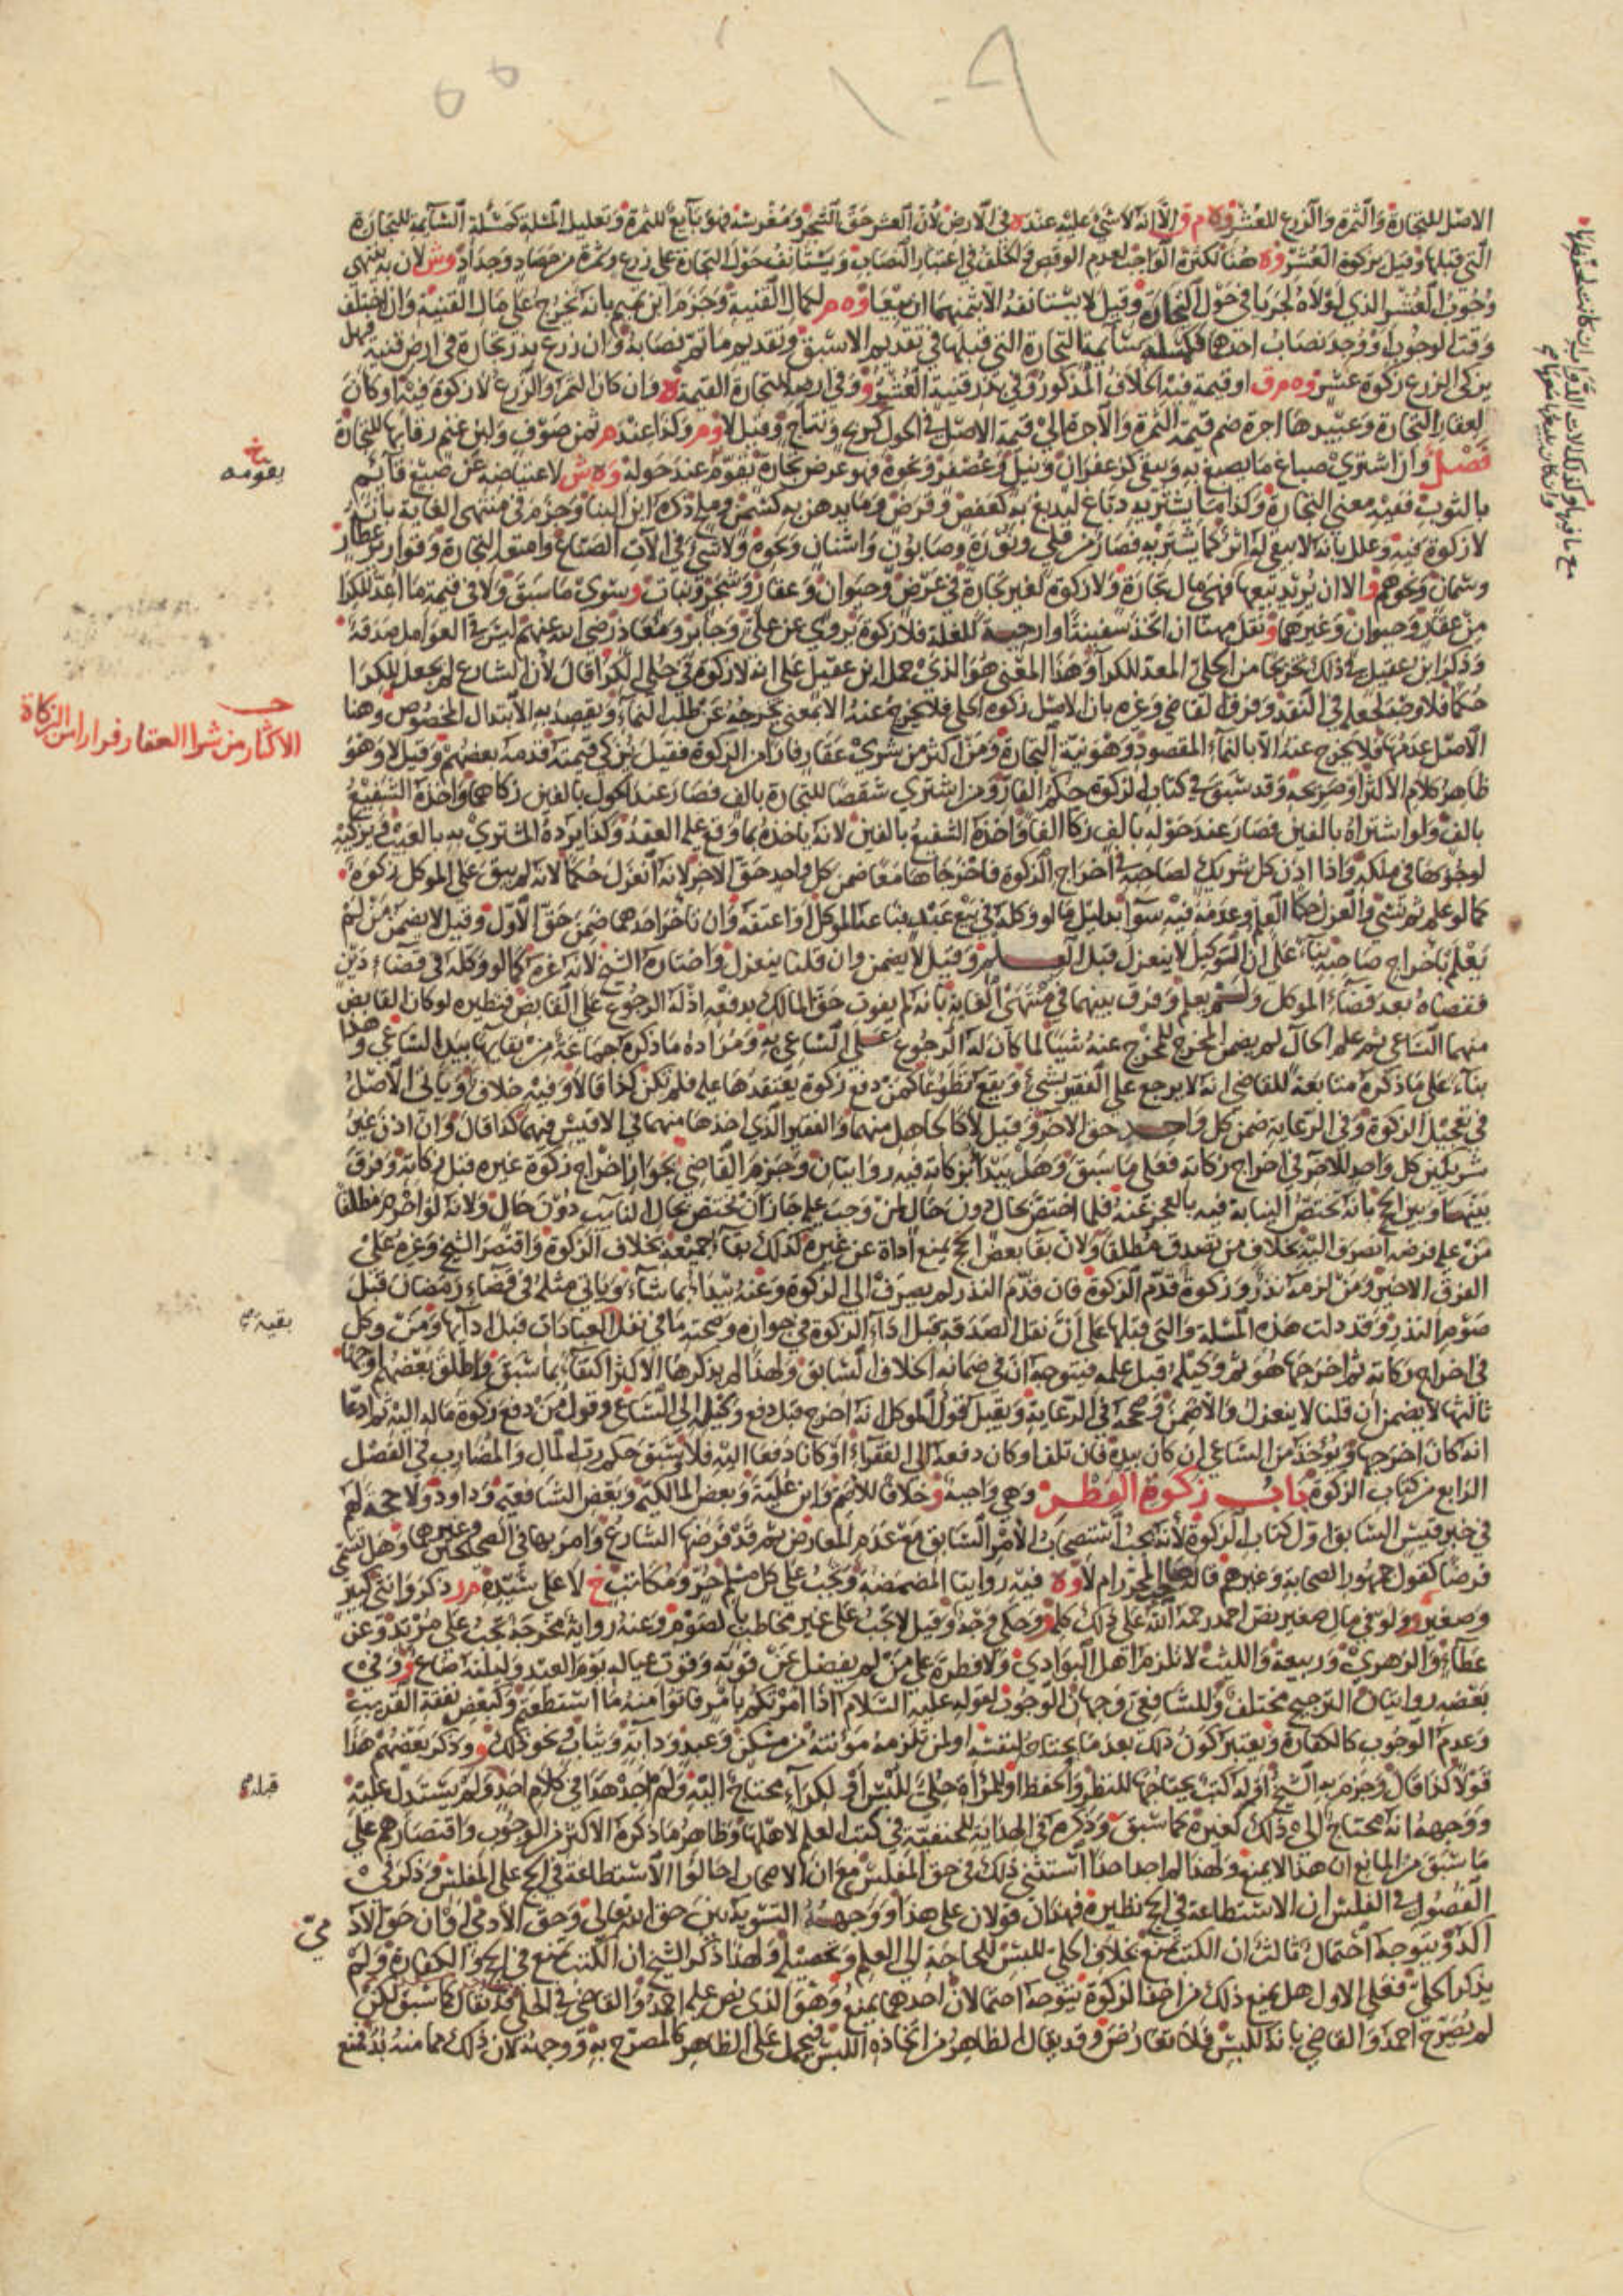 الاصل للتجارة والثمرة والزرع للعشر وه م ق الا انه لا شيء عليه عنده في الارض لان العشر حق الشجر ومغرسه فهو تابع للثمرة وتعليل المسئلة كمسئلة السائمة للتجارة
التي قبلها وقيل يزكوة العشر وه هنا لكثرة الواجب لعدم الوقص والخلف في اعتبار النصاب ويستانف حول التجارة على زرع وثمرة من حصاد وجداد وش لان به ينتهي
وجوب العشر الذي لولاه لجريا في حول التجارة وقيل لا يستانفه الا بثمنهما ان بيعا وه م كمال القنية وجزم ابن تميم بانه يخرج على مال القنية وان اختلف
وقت الوجوب او وجد نصاب احدهما فكمسئلة سائمة التجارة التي قبلها في تقديم الاسبق وتقديم ما تم نصابه وان زرع بذر تجارة في ارض قنية فهل
يزكى الزرع زكوة عشر وه م ق او قيمة فيه الخلاف المذكور وفي بذر قنية العشر و وفي ارض للتجارة القيمة ه وان كان الثمر والزرع لا زكوة فيه او كان
لعقار التجارة وعبيدها اجرة ضم قيمة الثمرة والاجرة الى قيمة الاصل في الحول كربح ونتاج وقيل لا وم وكذا عند م ثمن صوف ولبن غنم رقابها للتجارة
فصل وان اشترى صباغ ما يصبغ به ويبقى كزعفران ونيل وعصفر ونحوه فهو عرض تجارة يقومه عند حوله وه ش لاعتياضه عن صبغ قائم
بالثوب ففيه معنى التجارة وكذا ما يشتريه دباغ ليدبغ به كعفص وقرض وما يدهن به كسمن وملح ذكره ابن البنا وجزم في منتهى الغاية بانه
لا زكوة فيه وعلل بانه لا يبقى له اثر كما يشتريه قصار من قلي ونورة وصابون واشنان ونحوه ولا شيء في الات الصباغ وامتعة التجارة وقوارير عطار
وسمان ونحوهم و الا ان يريد بيعها فهي مال تجارة ولا زكوة لغير تجارة في عرض وحيوان وعقار وشجر ونبات و سوى ما سبق ولا في قيمة ما اعد للكرا
من عقار وحيوان وغيرهما و نقل مهنا ان اتخذ سفينة او ارحية للغلة فلا زكوة يروى عن علي وجابر ومعاذ رضي الله عنهم ليس في العوامل صدقة
وذكر ابن عقيل في ذلك تخريجا من الحلي المعد للكرا وهذا المعنى هو الذي حمل ابن عقيل على انه لا زكوة في حلي الكرا قال لان الشارع لم يجعل للكرا
حكما فلا وضد لجعله في النقد وفرق القاضي وغيره بان الاصل زكوة الحلي فلا يخرج عنه الا بمعنى يخرجه عن طلب النماء ويقصد به الابتذال المخصوص وهنا
الاصل عدمها فلا يخرج عنه الا بالنماء المقصود وهو نية التجارة ومن اكثر من شرى عقار فارا من الزكوة فقيل يزكي قيمته قدمه بعضهم وقيل لا وهو
ظاهر كلام الاكثر او صريحه وقد سبق في كتاب الزكوة حكم الفار ومن اشترى شقصا للتجارة بالف فصار عند الحول بالفين زكاهما واخذه الشفيع
بالف ولو اشتراه بالفين فصار عند حوله بالف زكا الفا واخذه الشفيع بالفين لانه ياخذه بما وقع عليه العقد وكذا يرده المشتري به بالعيب ويزكيه
لوجوبها في ملكه واذا اذن كل شريك لصاحبه في اخراج الزكوة فاخرجاها معا ضمن كل واحد حق الاخر لانه انعزل حكما لانه لم يبق على الموكل زكوة
كما لو علم ثم نسي والعزل حكما العلم وعدمه فيه سوا بدليل ما لو وكله في بيع عبد فباعه الموكل او اعتقه وان تاخر احدهما ضمن حق الاول وقيل لا يضمن من لم
يعلم باخراج صاحبه بناء على ان الوكيل لا ينعزل قبل العلم وقيل لا يضمن وان قلنا ينعزل واختاره الشيخ لانه غره كما لو وكله في قضاء دين
فقضاه بعد قضاء الموكل ولم يعلم وفرق بينهما في منتهى الغاية بانه لم يفوت حق المالك بدفعه اذ له الرجوع على القابض فنظيره لو كان القابض
منهما الساعي ثم علم الحال لم يضمن المخرج للمخرج عنه شيئا لما كان له الرجوع على الساعي به ومراده ما ذكره جماعة من بقايها بيد الساعي وهذا
بناء على ما ذكره متابعة للقاضي انه لا يرجع على الفقير بشيء ويقع تطوعا كمن دفع زكوة يعتقدها عليه فلم تكن كذا قالا وفيه خلاف وياتي الاصل
في تعجيل الزكوة وفي الرعاية ضمن كل واحد حق الاخر وقيل لا كالجاهل منهما والفقير الذي اخذها منهما في الاقيس فيهما كذا قال وان اذن غير
شريكين كل واحد للاخر في اخراج زكاته فعلى ما سبق وهل يبدأ بزكاته فيه روايتان وجزم القاضي بجواز اخراج زكوة غيره قبل زكاته وفرق
بينهما وبين الحج بانه تختص النيابة فيه بالعجز عنه فلما اختص بحال دون حال لمن وجب عليه جاز ان يختص بحال النايب دون حال ولانه لو احرم مطلقا
من عليه فرضه انصرف اليه بخلاف من تصدق مطلقا ولان بقا بعض الحج يمنع اداءه عن غيره كذلك بقاء جميعه بخلاف الزكوة واقتصر الشيخ وغيره على
الفرق الاخير ومن لزمه نذر وزكوة قدم الزكوة فان قدم النذر لم يصرف الى الزكوة وعنه يبدأ بما شاء وياتي مثله في قضاء رمضان قبل
صوم النذر وقد دلت هذه المسئلة والتي قبلها على ان نقل الصدقة قبل اداء الزكوة في جوازه وصحته ما في نفل العبادات قبل ادائها ومن وكل
في اخراج زكاته ثم اخرجها هو ثم وكيله قبل علمه فيتوجه ان في ضمانه الخلاف السابق ولهذا لم يذكرها الاكثر اكتفاء بما سبق واطلق بعضهم اوجها
ثالثها لا يضمن ان قلنا لا ينعزل والا ضمن وصححه في الرعاية ويقبل قول الموكل انه اخرج قبل دفع وكيله الى الساعي وقول من دفع زكوة ماله اليه ثم ادعا
انه كان اخرجها ويؤخذ من الساعي ان كان بيده فان تلفا او كان دفعه الى الفقراء او كانا دفعا اليه فلا وسبق حكم رب المال والمضارب في الفصل
الرابع من كتاب الزكوة باب زكوة الفطر وهي واجبة و خلافا للاصم وابن علية وبعض المالكية وبعض الشافعية وداود ولا حجة لهم
في خبر قيس السابق اول كتاب الزكوة لانه يجب استصحاب الامر السابق مع عدم المعارض ثم قد فرضها الشارع وامر بها في الصحيحين وغيرهما وهل تسمى
فرضا كقول جمهور الصحابة وغيرهم قاله صاحب المحرر ام لا وه فيه روايتا المضمضة وتجب على كل مسلم حر ومكاتب خ لا على سيده م ر ذكر وانثى كبير
وصغير و ولو في مال صغير نص احمد رحمه الله على ذلك كله و وحكي وجه وقيل لا تجب على غير مخاطب بالصوم وعنه رواية مخرجة تجب على مرتد وعن
عطاء والزهري وربيعة والليث لا تلزم اهل البوادي ولا فطرة على من لم يفضل عن قوته وقوت عياله يوم العيد وليلته صاع و وفي
بعضه روايتان الترجيح مختلف وللشافعي وجهان الوجوب لقوله عليه السلام اذا امرتكم بامر فاتوا منه ما استطعتم وكبعض نفقة القريب
وعدم الوجوب كالكفارة ويعتبر كون ذلك بعد ما يحتاجه لنفسه او لمن تلزمه مؤنته من مسكن وعبد ودابة وثياب ونحو ذلك و وذكر بعضهم هذا
قولا كذا قال وجزم به الشيخ او له كتب يحتاجها للنظر والحفظ او للمرأة حلي للبس او لكراء محتاج اليه ولم اجد هذا في كلام احد ولم يستدل عليه
ووجهه انه محتاج الى ذلك كغيره كما سبق وذكره في الهداية للحنفية في كتب العلم لاهلها وظاهر ما ذكره الاكثر من الوجوب واقتصارهم على
ما سبق من المانع ان هذا لا يمنع ولهذا لم اجد احدا استثنى ذلك في حق المفلس مع ان الاصحاب احالوا الاستطاعة في الحج على المفلس وذكر في
الفصول في الفلس ان الاستطاعة في الحج نظيره فهذان قولان على هذا ووجهه التسوية بين حق الله تعالى وحق الادمي او ان حق الاد
اكد ويتوجه احتمال ثالث ان الكتب تمنع بخلاف الحلي للبس للحاجة الى العلم وتحصيله ولهذا ذكر الشيخ ان الكتب تمنع في الحج والكفارة ولم
يذكر الحلي فعلى الاول هل يمنع ذلك من اخذ الزكوة يتوجه احتمالان احدهما يمنع وهو الذي نص عليه احمد والقاضي في الحلي قد يقال كما سبق لكن
لم يصرح احمد والقاضي بانه للبس فلا تعارض وقد يقال الظاهر من اتخاذه اللبس فيحمل على الظاهر كالمصرح به ووجهه لان ذلك مما منه بد فمنع
يقومه خ
الاكثار من شرا العقار فرارا من الزكاة
بقية
قبله
مي